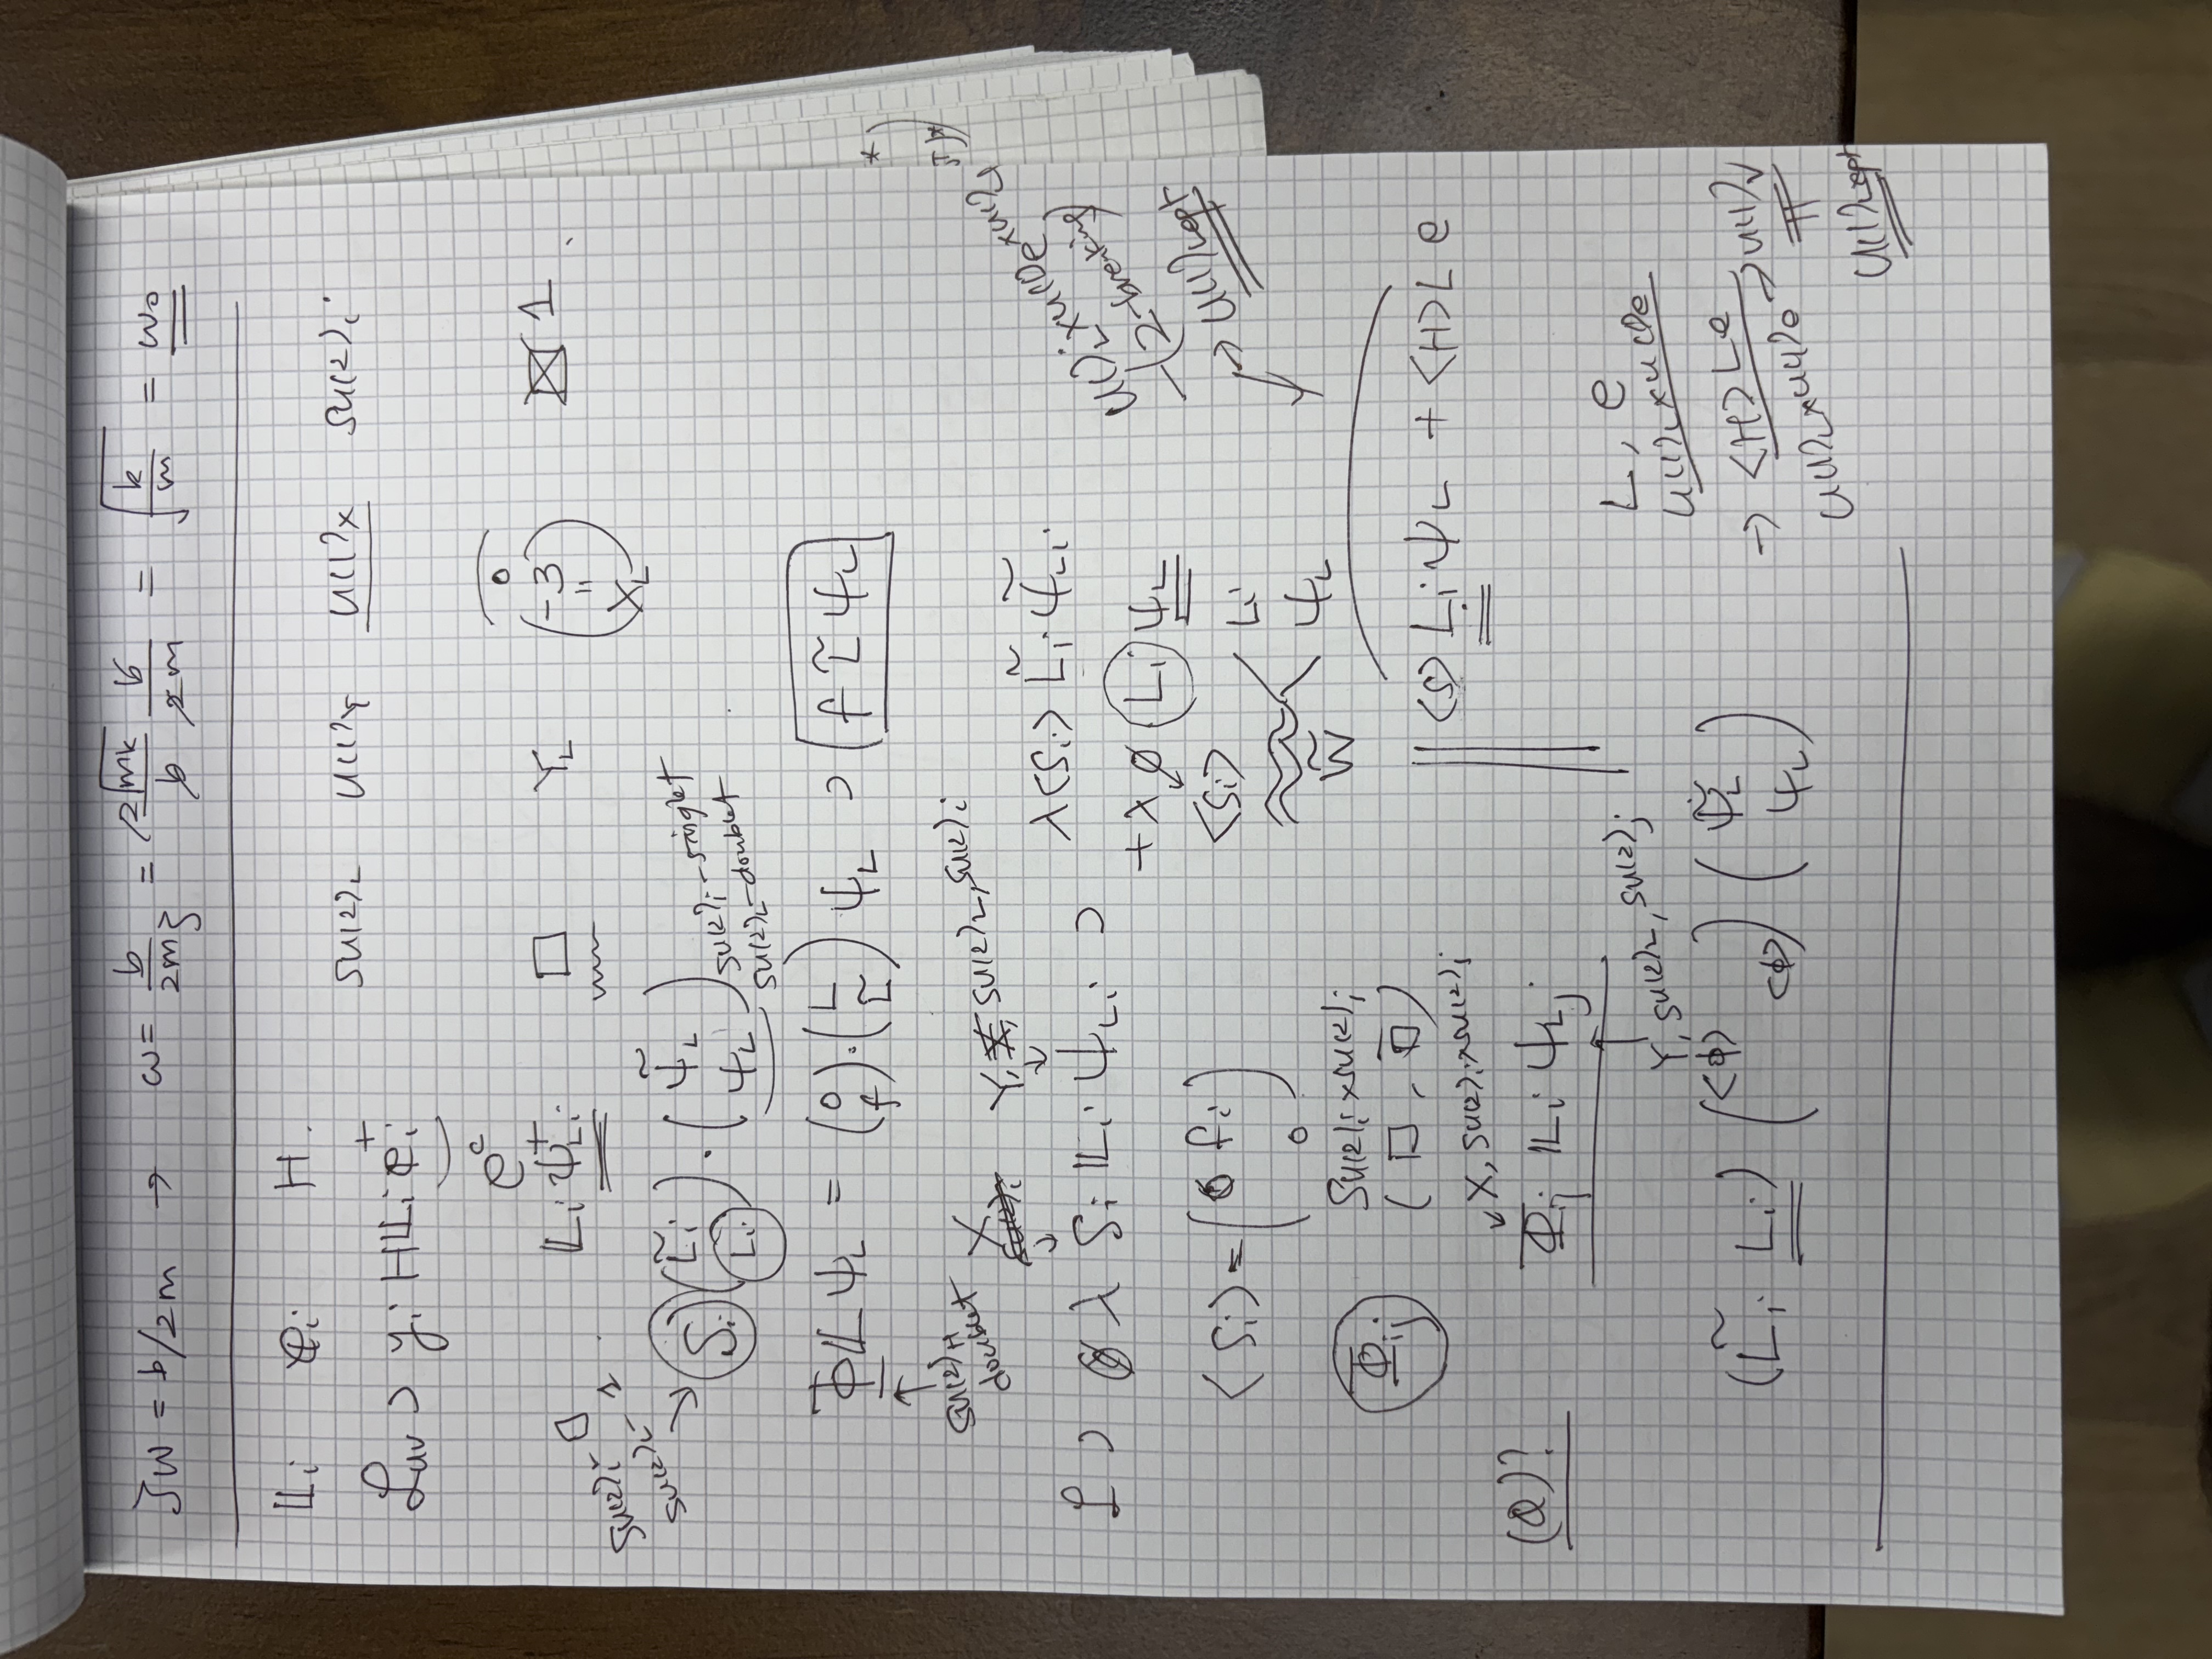 ζω = b/2m → ω = b/2mζ = 2√mk/b b/2m = √k/m = ω₀
𝕃i ei H.
SU(2)L U(1)Y U(1)X SU(2)i
ℒuv ⊃ yi H 𝕃i ei†
eᶜ
𝕃i ψLi† □ YL (0 -3 = XL) 1
SU(2)i □
SU(2)L - 1
Si (L̃i Li) · (ψ̃L ψL) SU(2)i-singlet
SU(2)L-doublet
Φ 𝕃 ψL = (0 f) · (L L̃) ψL ⊃ f L̃ ψL
↑
SU(2)H
doublet
X
Y, SU(2)L, SU(2)i
ℒ ⊃ λ Si 𝕃i ψLi ⊃ λ⟨Si⟩ L̃i ψ̃Li
+ λ ø Li ψL
⟨Si⟩
⟨Si⟩ = (fi 0)
W̃ Li ψL
U(1)L × U(1)e × U(1)ψ
-(2-breaking)
→ U(1)Lept
Φij SU(2)i × SU(2)j
(□, □̅)
⟨S⟩ Li ψL + ⟨H⟩ L e
↙ X, SU(2)i × SU(2)j
(Q)? Φij 𝕃i ψLj
↑
Y, SU(2)L, SU(2)j
(L̃i Li) (⟨ϕ⟩ ⟨ϕ⟩) (ψ̃L ψL)
L, e
U(1)L × U(1)e
→ ⟨H⟩ L e
U(1)L × U(1)e → U(1)V
U(1)Lept